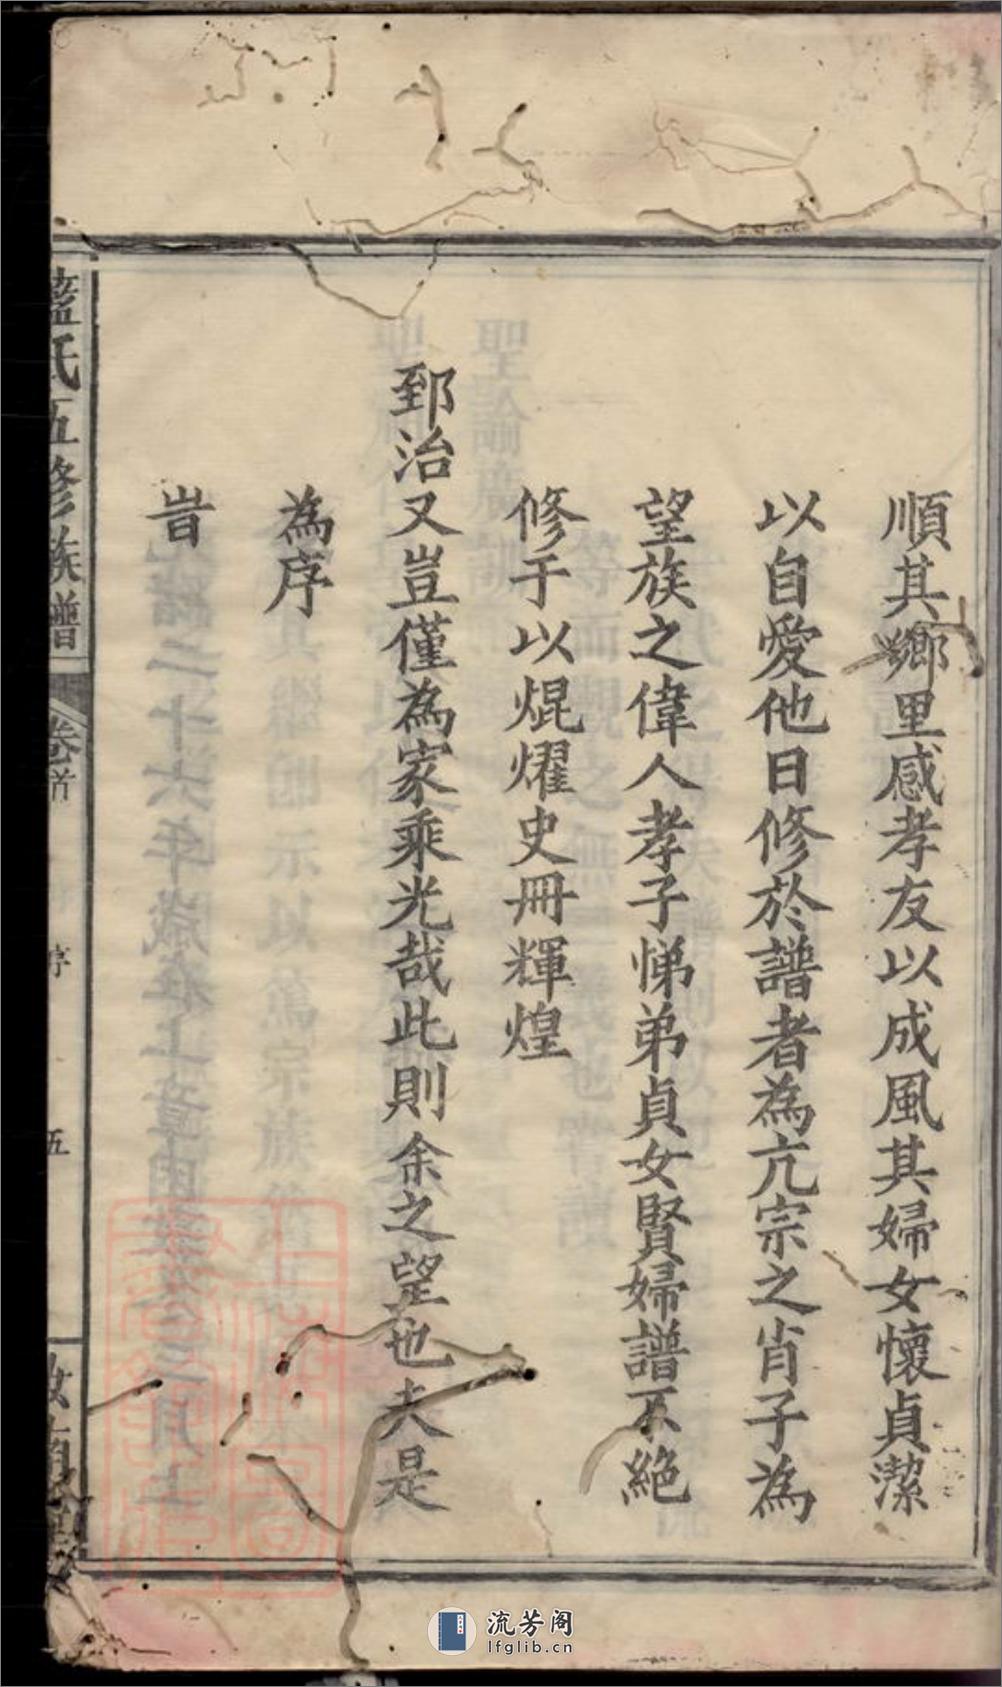 順其鄉里感孝友以成風其婦女懷貞潔
以自愛他日修於譜者為亢宗之肖子為
望族之偉人孝子悌弟貞女賢婦譜不絕
修于以焜燿史冊輝煌
郅治又豈僅為家乘光哉此則余之望也夫是
為序
旹
氏五修族譜
卷首
序
五
流芳阁
lfglib.cn